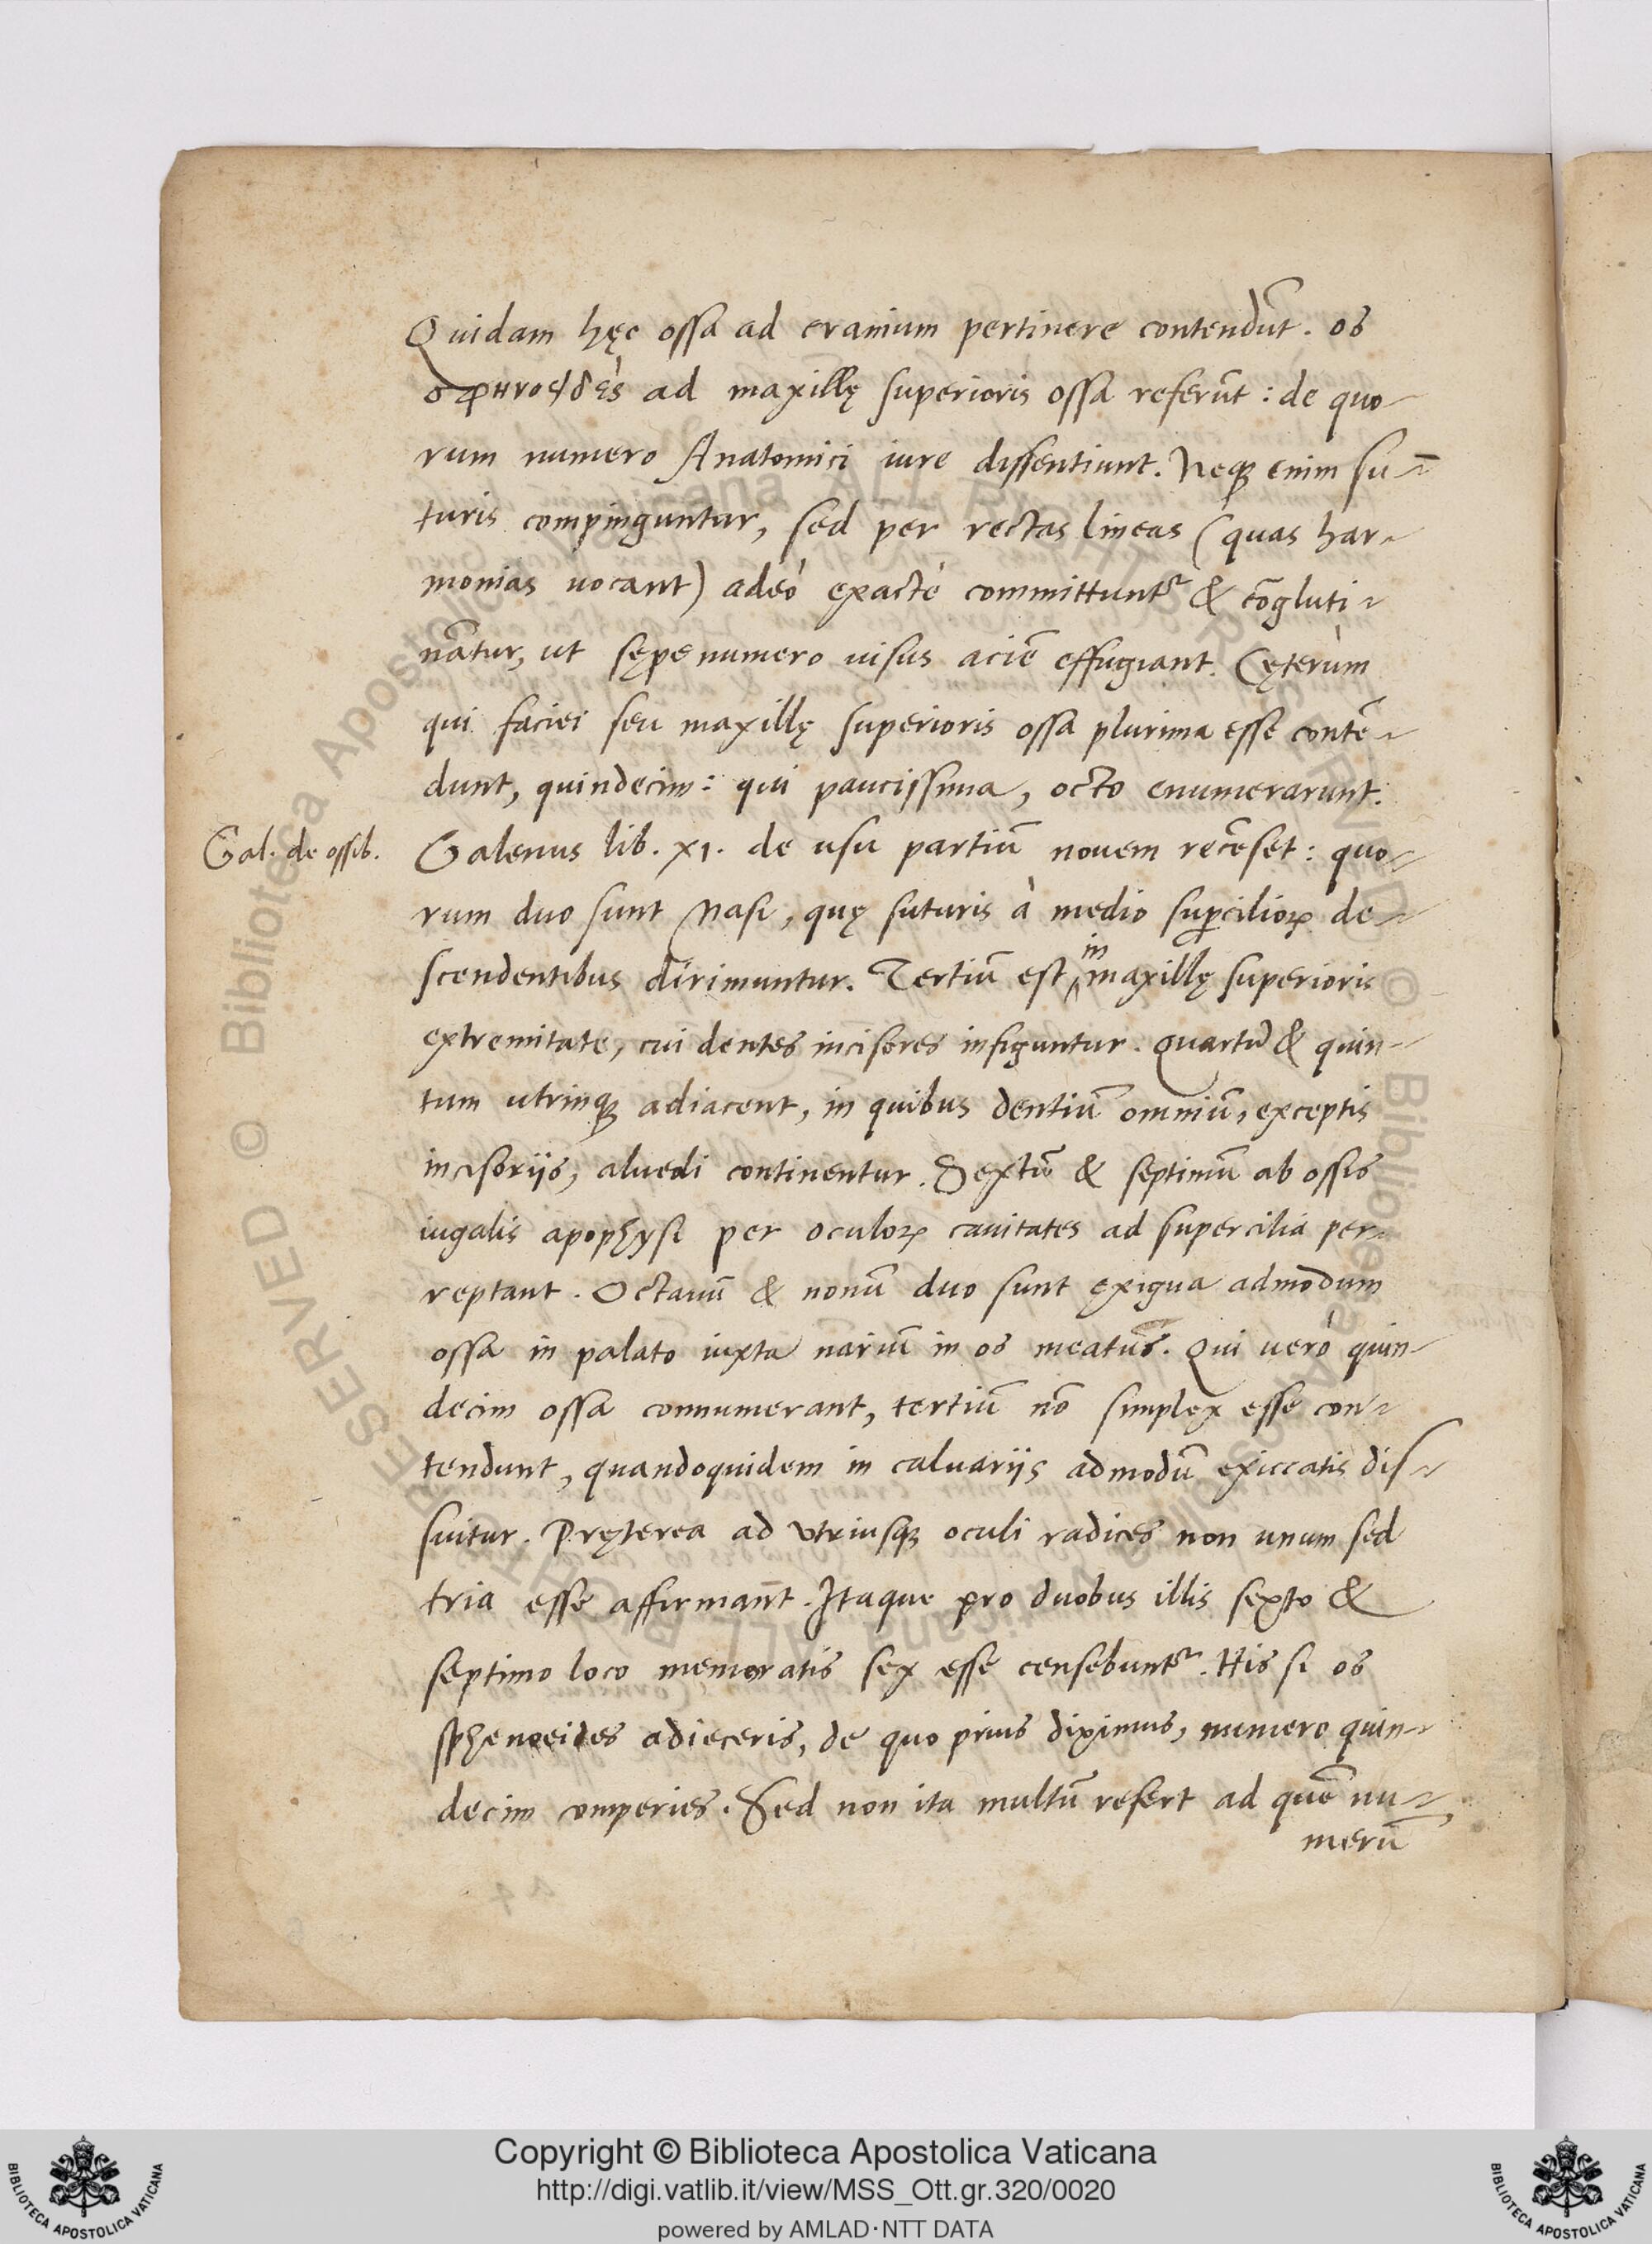 Quidam hęc ossa ad cranium pertinere contendūt. os
σφηνοειδὲς ad maxillę superioris ossa referūt : de quo-
rum numero Anatomici iure dissentiunt. Neq; enim su-
turis compinguntur, sed per rectas lineas (quas har-
monias uocant) adeò exactè committuntr̃ & cōgluti-
nātur, ut sępenumero uisus aciē effugiant. Cęterùm
qui faciei seu maxillę superioris ossa plurima esse contē-
dunt, quindecim : qui paucissima, octo enumerarunt.
Gal. de ossib.
Galenus lib. XI. de usu partiū nouem recēset : quo-
rum duo sunt Nasi, quę suturis à medio suꝑcilioꝝ de-
scendentibus dirimuntur. Tertiū est in maxillę superioris
extremitate, cui dentes incisores infiguntur. Quartū & quin-
tum utrinq; adiacent, in quibus dentiū omniū, exceptis
incisoriis, aluedi continentur. Sextū & septimū ab ossis
iugalis apophysi per oculoꝝ cauitates ad supercilia per-
reptant. Octauū & nonū duo sunt exigua admodum
ossa in palato iuxta nariū in os meatus. Qui uerò quin-
decim ossa connumerant, tertiū nō simplex esse con-
tendunt, quandoquidem in caluariis admodū exiccatis dis-
suitur. Pręterea ad vtriusq; oculi radices non unum sed
tria esse affirmant. Itaque pro duobus illis sexto &
septimo loco memoratis sex esse censebuntr̃. His si os
sphenoeides adieceris, de quo prius diximus, numero quin-
decim comperies. Sed non ita multū refert ad quē nu-
merū
Copyright © Biblioteca Apostolica Vaticana
http://digi.vatlib.it/view/MSS_Ott.gr.320/0020
powered by AMLAD·NTT DATA